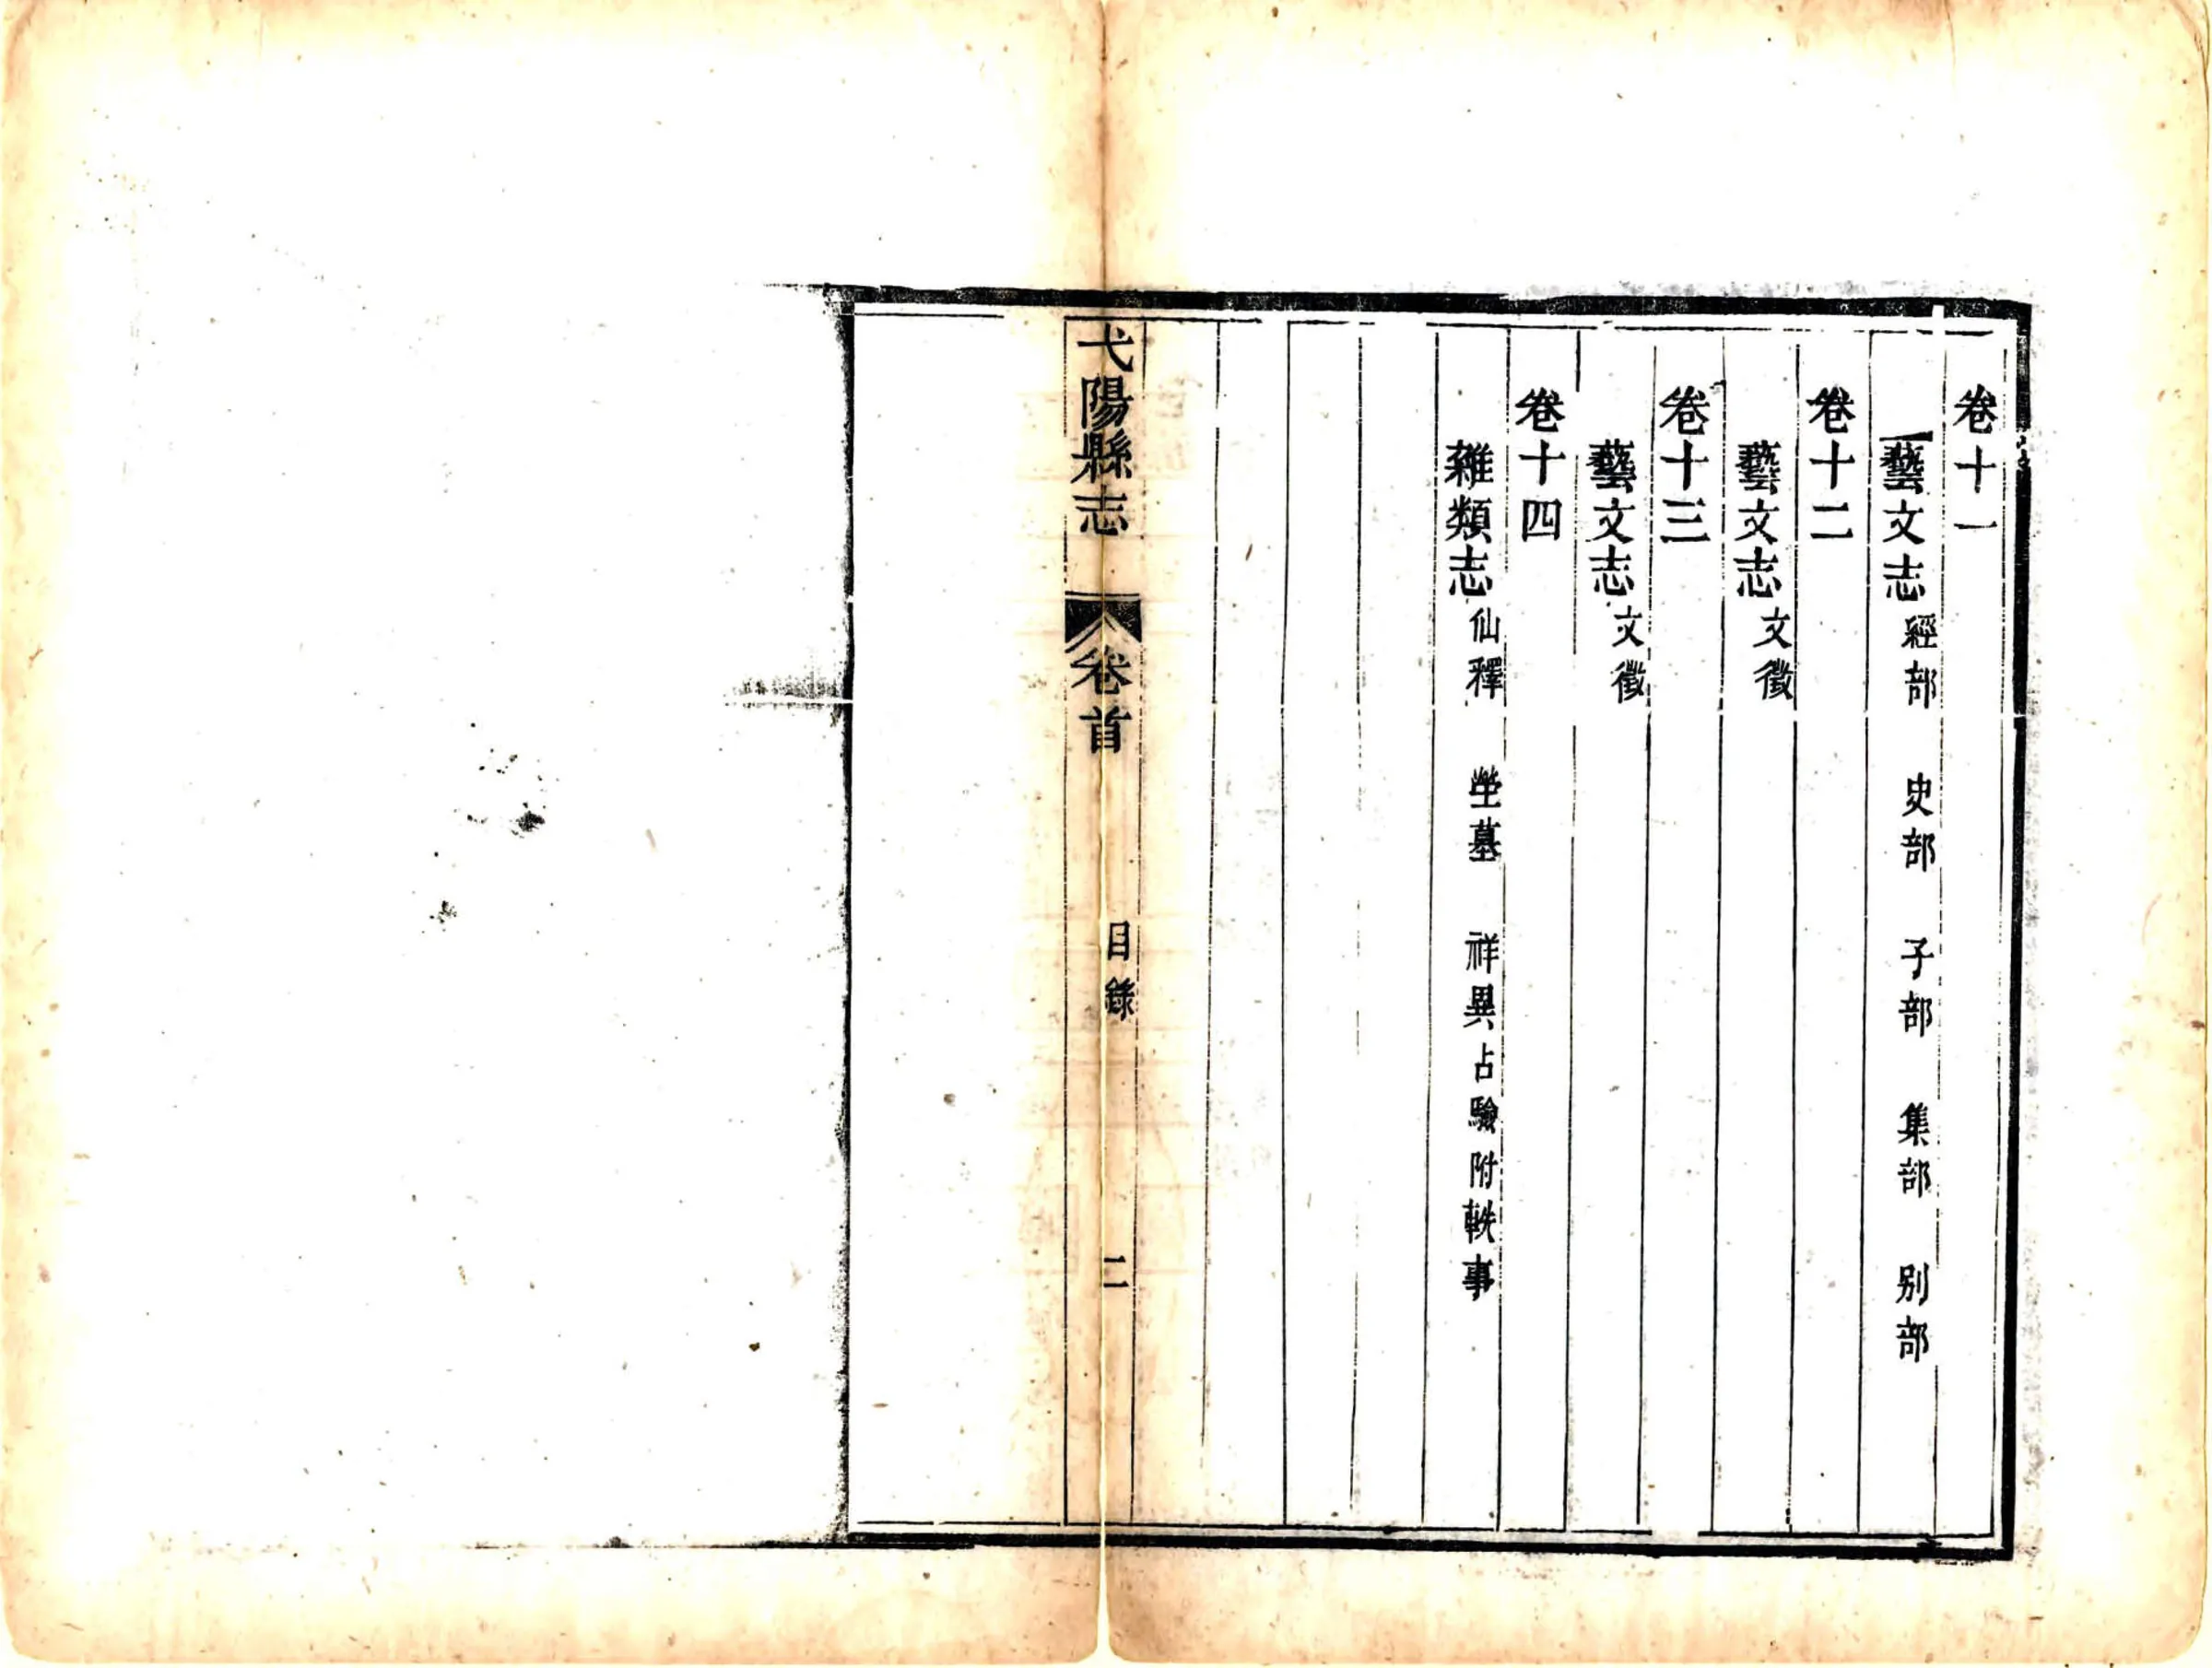 卷十一
藝文志 經部 史部 子部 集部 别部
卷十二
藝文志 文徵
卷十三
藝文志 文徵
卷十四
雜類志 仙釋 塋墓 祥異占驗附軼事
弋陽縣志 卷首 目錄 二